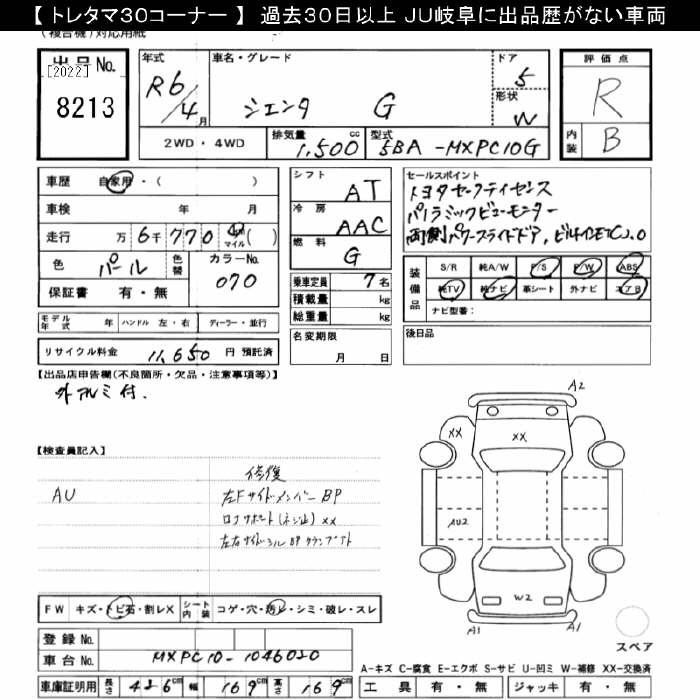 【 トレタマ30コーナー 】 過去30日以上 JU岐阜に出品歴がない車両
(複合機)対応用紙
出品No.
[2022]
8213
年式
R6/4月
車名・グレード
シエンタ G
ドア
5
形状
W
2WD・4WD
排気量
1,500cc
型式
5BA-MXPC10G
評価点
R
内装
B
車歴 自家用・( )
車検 年 月
走行 万6千770 km マイル( )
色 パール 色替 カラーNo. 070
保証書 有・無
シフト AT
冷房 AAC
燃料 G
乗車定員 7名
積載量 kg
総重量 kg
名変期限
月 日
セールスポイント
トヨタセーフティセンス
パノラミックビューモニター
両側パワースライドドア,ビルトインETC2.0
装備品
S/R 純A/W P/S P/W ABS
純TV 純ナビ 革シート 外ナビ エアB
ナビ型番:
後日品
モデル年式 年 ハンドル 左・右 ディーラー・並行
リサイクル料金 11,650 円 預託済
【出品店申告欄(不良箇所・欠品・注意事項等)】
外アルミ付.
【検査員記入】
AU
修復
左Fサイドメンバー BP
コアサポート(ネジ止) XX
左右サイドシル BP クランプあト
A2
XX
XX
AU2
W2
A1
A1
スペア
FW キズ・トビ石・割レX シート内装 コゲ・穴・汚レ・シミ・破レ・スレ
登録No.
車台No. MXPC10-1046020
車庫証明用 長さ 426cm 幅 169cm 高さ 169cm
A-キズ C-腐食 E-エクボ S-サビ U-凹ミ W-補修 XX-交換済
工具 有・無 ジャッキ 有・無